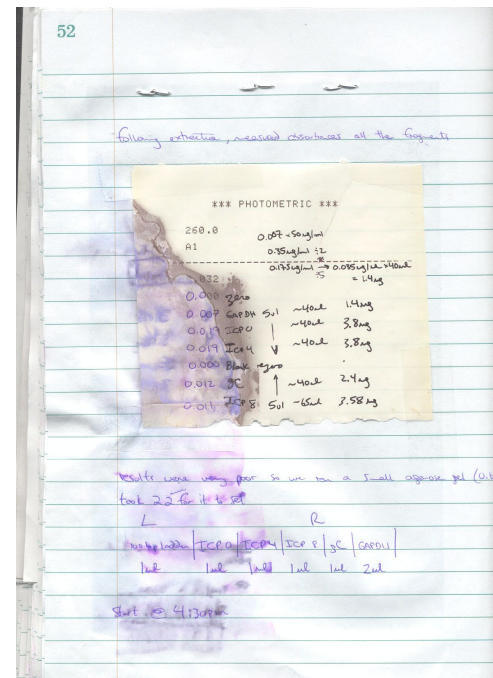 52
following extraction, measured absorbances all the fragments
*** PHOTOMETRIC ***
260.0
A1
0.007 x 50ug/ml
0.35ug/ml ÷2
0.175ug/ml → 0.035ug/ul x40ul
÷5
= 1.4ug
.032
0.000 zero
0.007 GAPDH 5ul ~40ul 1.4ug
0.019 ICP0 ~40ul 3.8ug
0.019 ICP4 ~40ul 3.8ug
0.000 Blank rezero
0.012 gC ~40ul 2.4ug
0.011 ICP8 5ul ~65ul 3.58ug
results were very poor so we run a small agarose gel
took 22 for it to set
L R
100bp ladder | ICP0 | ICP4 | ICP8 | gC | GAPDH |
1ul 1ul 1ul 1ul 1ul 2ul
Start @ 4:30pm